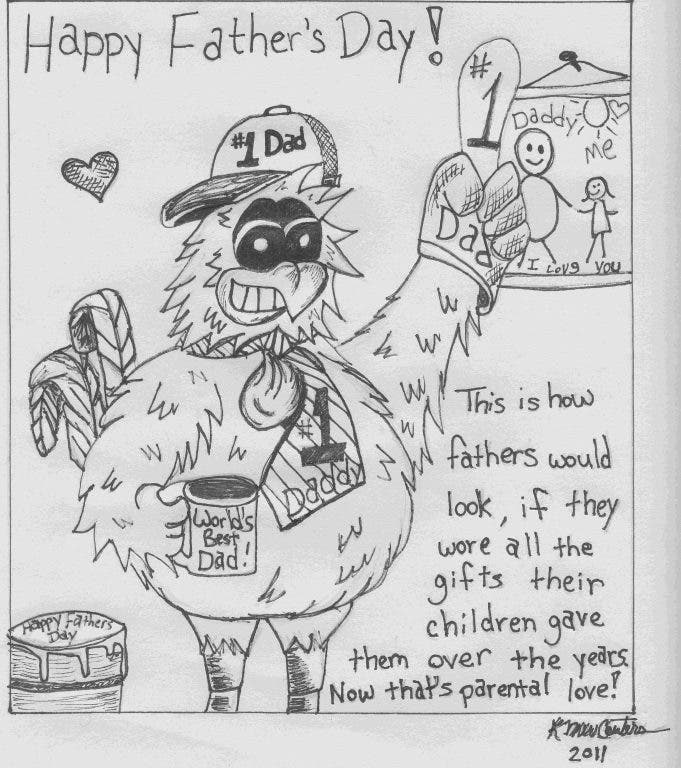 Happy Father's Day!
#1 Dad
#1
Dad
Daddy
me
I Love You
#1
Daddy
World's
Best
Dad!
Happy Fathers
Day
This is how
fathers would
look, if they
wore all the
gifts their
children gave
them over the years.
Now that's parental love!
2011